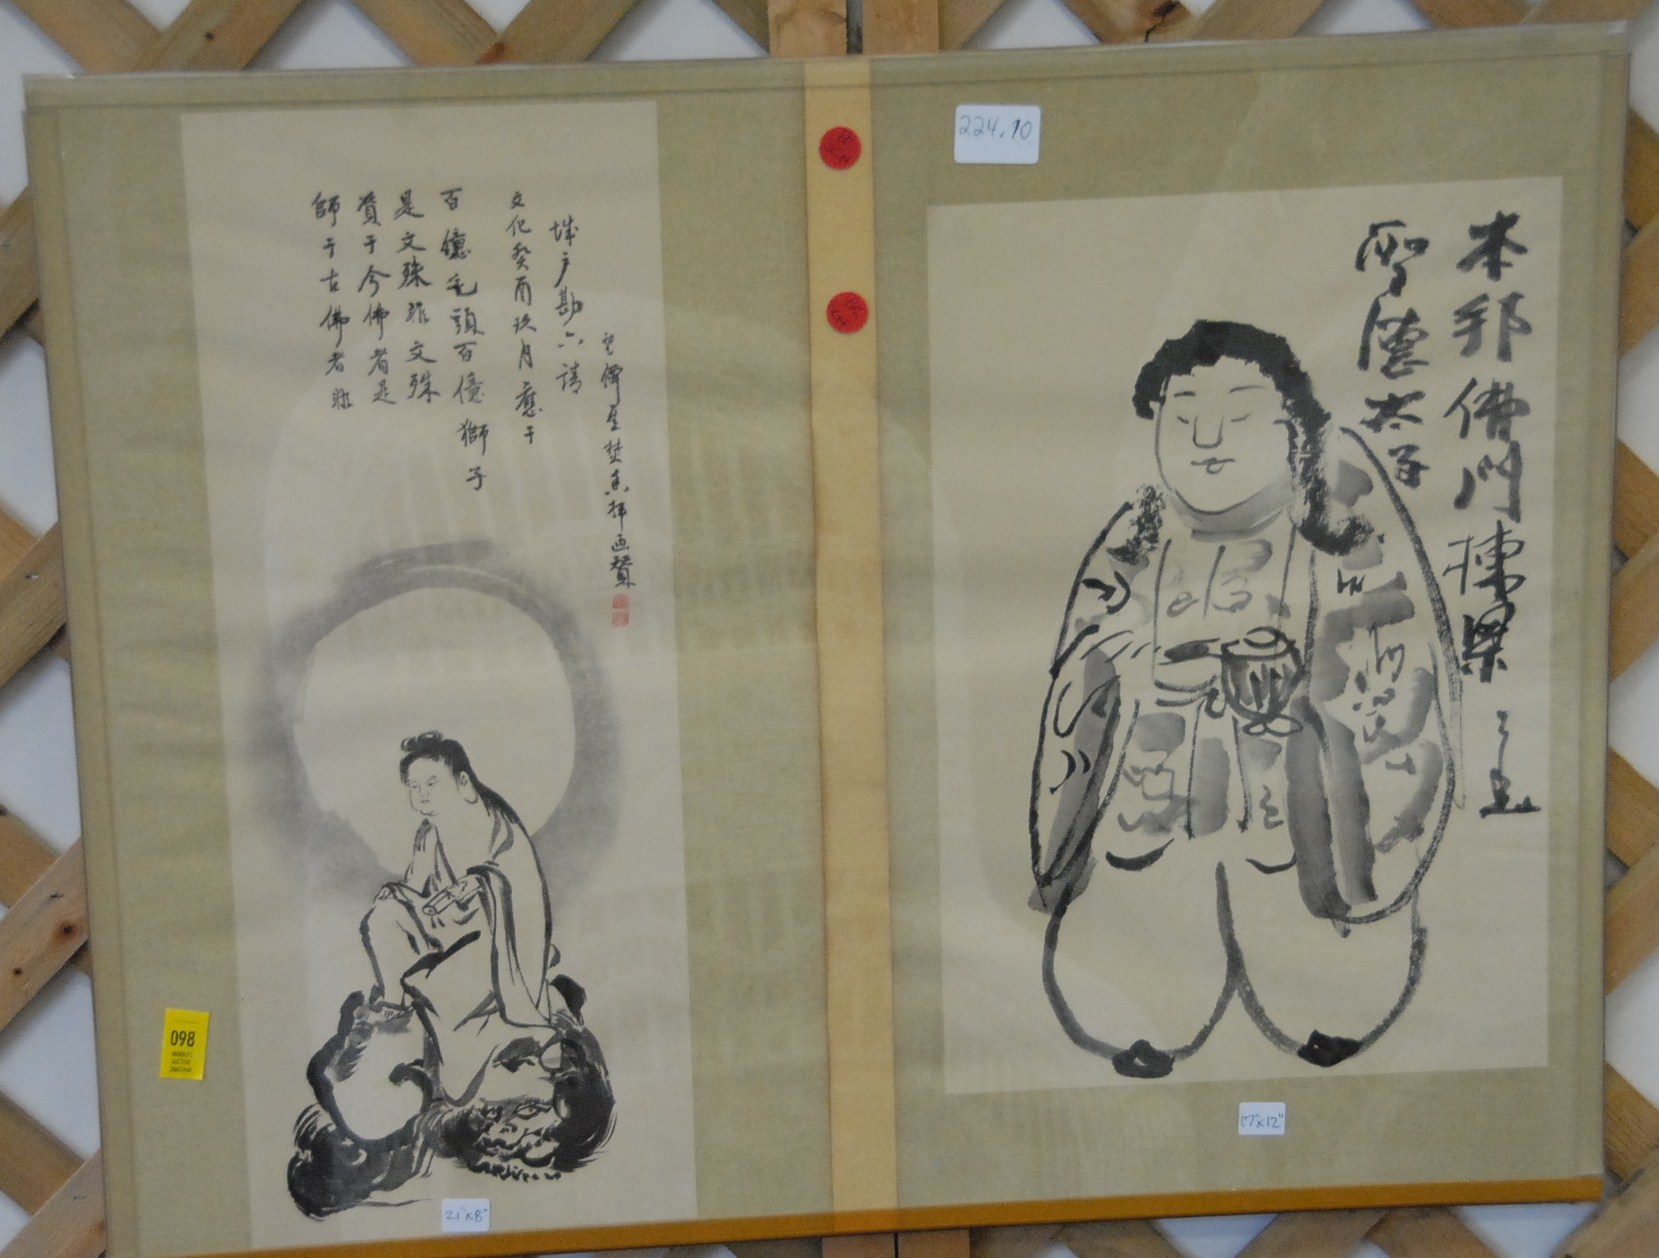 師于古佛者
資于今佛者是
是文殊非文殊
百億毛頭百億獅子
文化癸酉玖月應于
城戸勘六請
厓焚香拝画賛
224.10
本邦佛門棟梁
聖徳太子
098
21"x8"
17"x12"